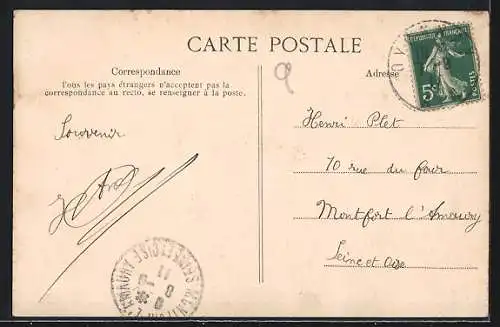 CARTE POSTALE
Correspondance
Tous les pays étrangers n'acceptent pas la
correspondance au recto, se renseigner à la poste.
Souvenir
Adresse
REPUBLIQUE FRANÇAISE
5c
POSTES
Henri Plet
70 rue du four
Montfort l'Amaury
Seine et Oise